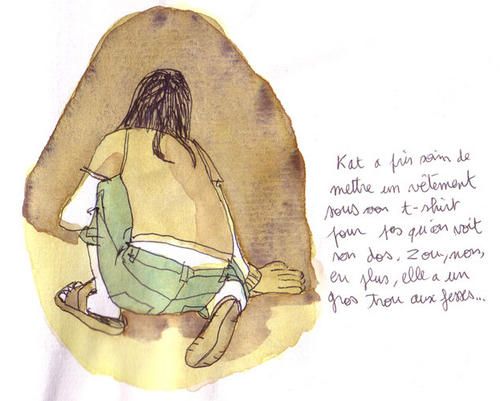 Kat a pris soin de
mettre un vêtement
sous son t-shirt
pour pas qu'on voit
son dos. Zou, non,
en plus, elle a un
gros trou aux fesses...